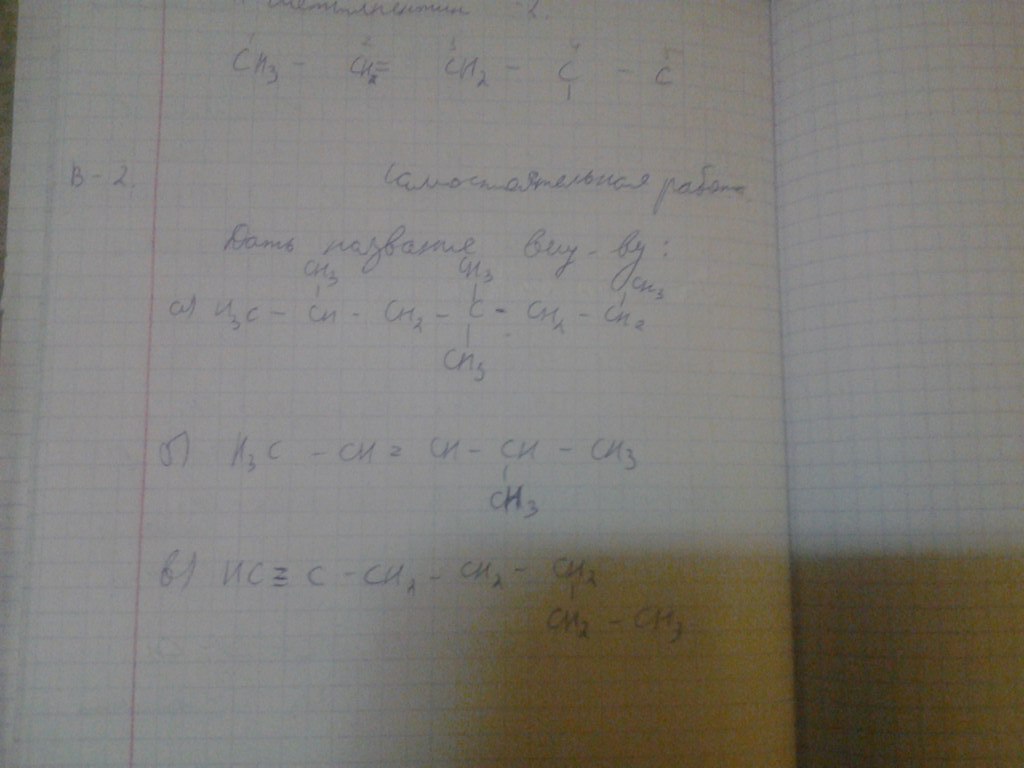 2.
1 2 3 4 5
CH3 - CH2= CH2 - C - C
В-2. Самостоятельная работа
Дать название вещ-ву:
CH3 CH3 CH3
а) H3C - CH - CH2 - C - CH2 - CH2
CH3
б) H3C - CH = CH - CH - CH3
CH3
в) HC ≡ C - CH2 - CH2 - CH2
CH2 - CH3